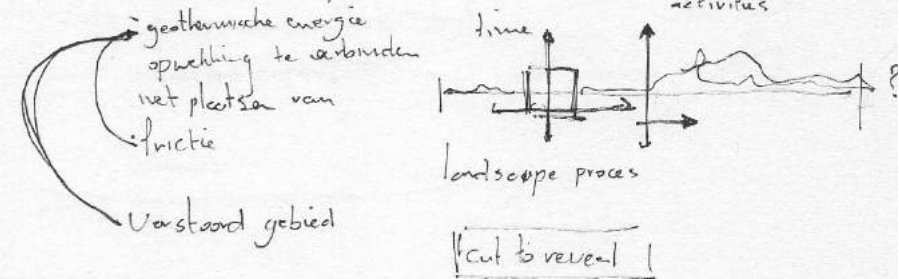 geothermische energie
opwekking te verbinden
met plaatsen van
frictie
Verstoord gebied
time
activities
?
landscape proces
cut to reveal